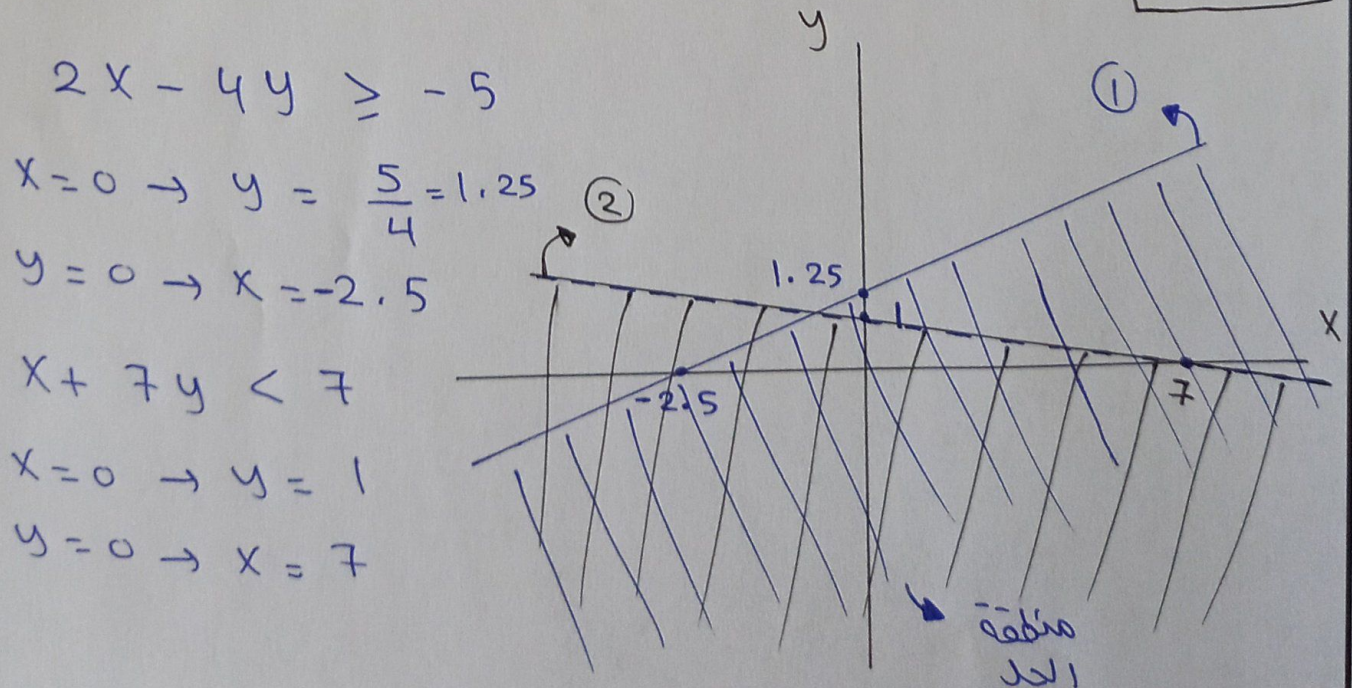 2x - 4y ≥ -5
x=0 → y = 5/4 = 1.25
y=0 → x = -2.5
x + 7y < 7
x=0 → y = 1
y=0 → x = 7
y
①
②
1.25
1
x
-2.5
7
منطقة
الحل